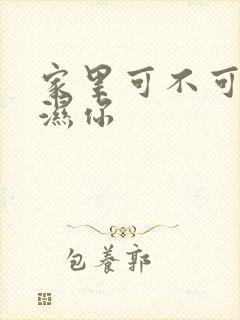 家里可不可
濕你
包養郭